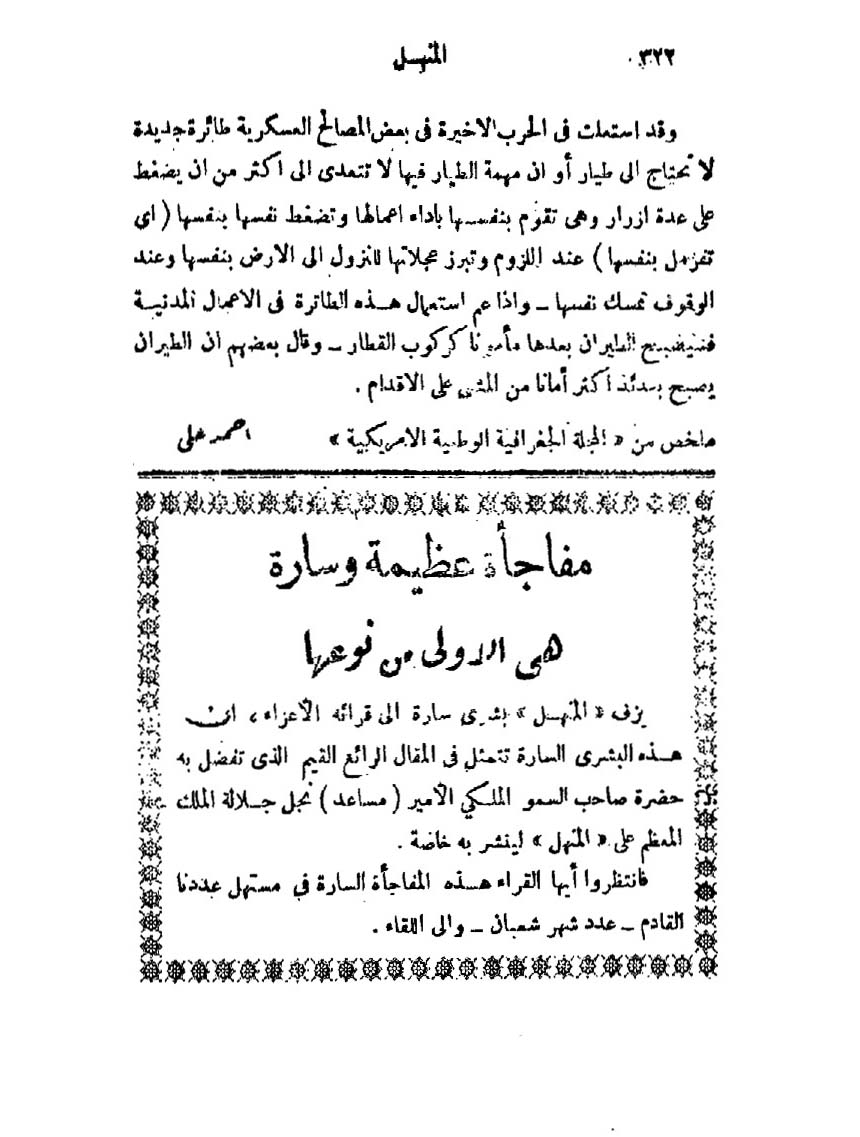 ٣٢٢
المنهل
وقد استعملت فى الحرب الاخيرة فى بعض المصالح العسكرية طائرة جديدة
لا تحتاج الى طيار أو ان مهمة الطيار فيها لا تتعدى الى اكثر من ان يضغط
على عدة ازرار وهى تقوم بنفسها باداء اعمالها وتضغط نفسها بنفسها ( اي
تفرمل بنفسها ) عند اللزوم وتبرز عجلاتها للنزول الى الارض بنفسها وعند
الوقوف تمسك نفسها ــ واذا عم استعمال هــذه الطائرة فى الاعمال المدنيــة
فسيصبح الطيران بعدها مأمونا كركوب القطار ــ وقال بعضهم ان الطيران
يصبح بعدئذ أكثر أمانا من المشي على الاقدام .
ملخص من « المجلة الجغرافية الوطنية الامريكية »
احمد على
مفاجأة عظيمة وسارة
هى الاولى من نوعها
يزف « المنهــل » بشرى سارة الى قرائه الأعزاء ، ان
هــذه البشرى السارة تتمثل فى المقال الرائع القيم الذى تفضل به
حضرة صاحب السمو الملكي الأمير ( مساعد ) نجل جــلالة الملك
المعظم على « المنهل » لينشر به خاصة .
فانتظروا أيها القراء هــذه المفاجأة السارة في مستهل عددنا
القادم ــ عدد شهر شعبان ــ والى اللقاء .